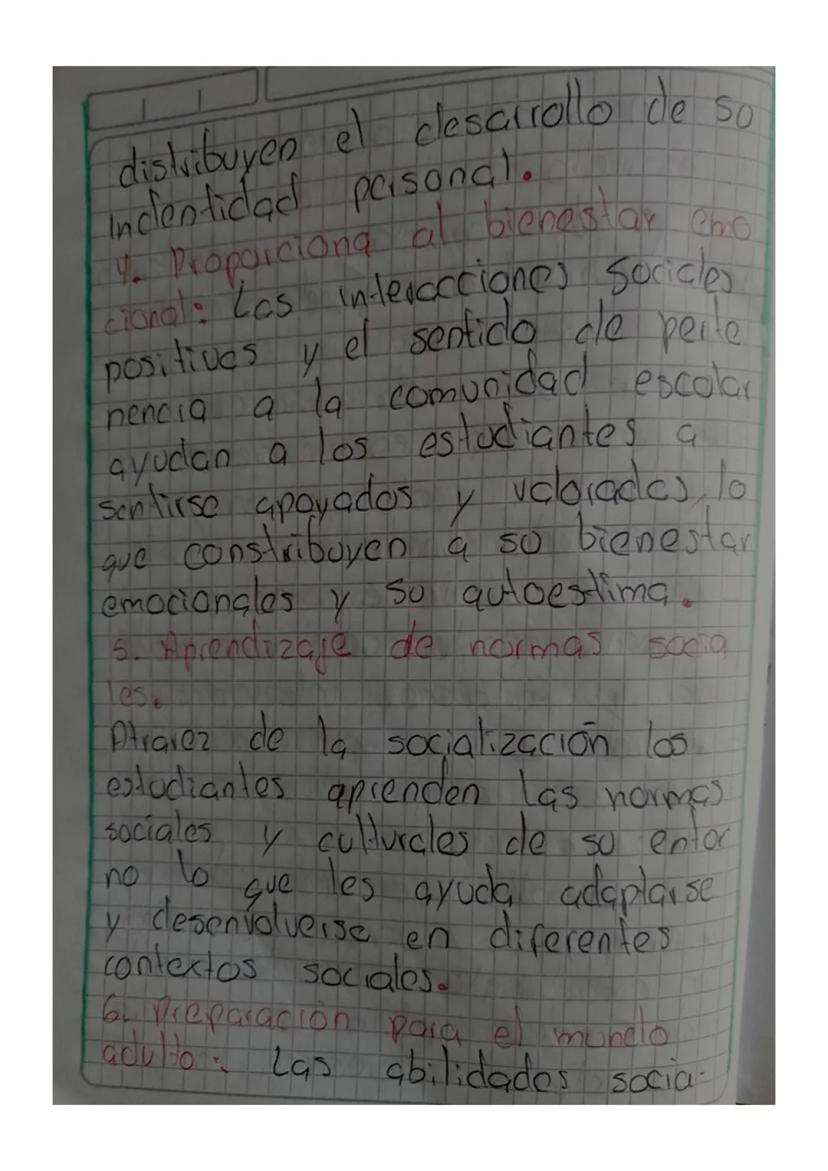 distribuyen el desarrollo de so
indentidad personal.
4. Proporciona al bienestar emo
cional: Las interaccciones sociales
positivas y el sentido de perte
nencia a la comunidad escolar
ayudan a los estudiantes a
sentirse apoyados y valorados, lo
que constribuyen a so bienestar
emocionales y su autoestima.
5. Aprendizaje de normas socia
les.
Atravez de la socialización los
estudiantes aprenden las normas
sociales y culturales de su entor
no lo que les ayuda adaptarse
y desenvolverse en diferentes
contextos sociales.
6. Preparación para el mundo
adulto: Las abilidades socia-